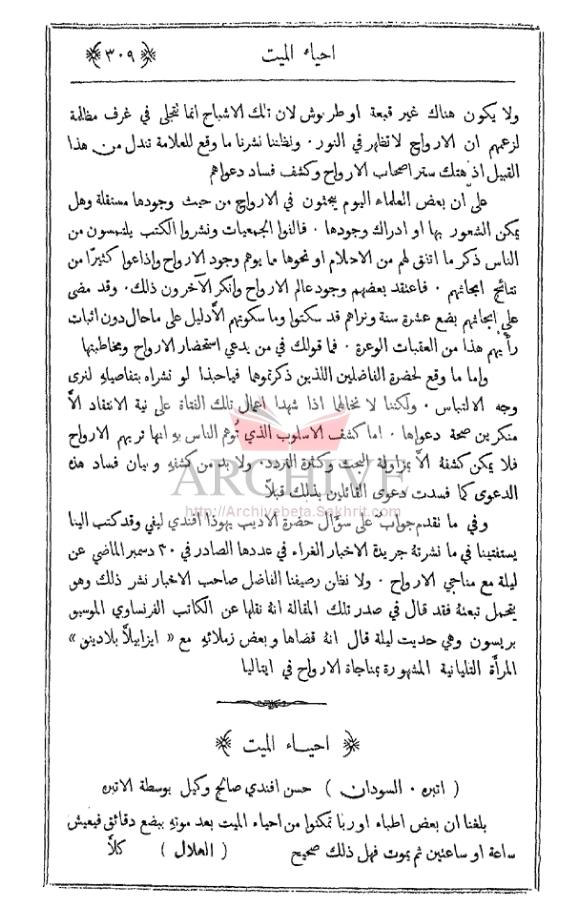 احياء الميت ﴿٣٠٩﴾
ولا يكون هناك غير قبعة او طربوش لان تلك الاشباح انما تتجلى في غرف مظلمة
لزعمهم ان الارواح لا تظهر في النور . ونظننا نشرنا ما وقع للعلامة تندل من هذا
القبيل اذ هتك ستر اصحاب الارواح وكشف فساد دعواهم
على ان بعض العلماء اليوم يبحثون في الارواح من حيث وجودها مستقلة وهل
يمكن الشعور بها او ادراك وجودها . فالفوا الجمعيات ونشروا الكتب يلتمسون من
الناس ذكر ما اتفق لهم من الاحلام او نحوها ما يوهم وجود الارواح واذاعوا كثيرًا من
نتائج ابحاثهم . فاعتقد بعضهم وجود عالم الارواح وانكر الآخرون ذلك . وقد مضى
على ابحاثهم بضع عشرة سنة ونراهم قد سكتوا وما سكوتهم الا دليل على ما حال دون اثبات
رأيهم هذا من العقبات الوعرة . فما قولك في من يدعي استحضار الارواح ومخاطبتها
واما ما وقع لحضرة الفاضلين اللذين ذكرتموهما فياحبذا لو نشراه بتفاصيله لنرى
وجه الالتباس . ولكننا لا نخالهما اذا شهدا اعمال تلك الفتاة على نية الانتقاد الاَّ
منكرين صحة دعواها . اما كشف الاسلوب الذي توهم الناس به انها تريهم الارواح
فلا يمكن كشفه الاَّ بمزاولة البحث وكثرة التردد . ولا بد من كشفه وبيان فساد هذه
الدعوى كما فسدت دعوى القائلين بذلك قبلاً
وفي ما تقدم جواب على سؤال حضرة الاديب يهوذا افندي ليفي وقد كتب الينا
يستفتينا في ما نشرته جريدة الاخبار الغراء في عددها الصادر في ٣٠ دسمبر الماضي عن
ليلة مع مناجي الارواح . ولا نظن رصيفنا الفاضل صاحب الاخبار نشر ذلك وهو
يتحمل تبعته فقد قال في صدر تلك المقالة انه نقلها عن الكاتب الفرنساوي الموسيو
بريسون وهي حديث ليلة قال انه قضاها وبعض زملائه مع « ايزابيلا بلادينو »
المرأة التليانية المشهورة بمناجاة الارواح في ايتاليا
ARCHIVE
http://Archivebeta.Sakhrit.com
﴿ احياء الميت ﴾
( اتبره . السودان ) حسن افندي صالح وكيل بوسطة الاتبره
بلغنا ان بعض اطباء اوربا تمكنوا من احياء الميت بعد موته ببضع دقائق فيعيش
ساعة او ساعتين ثم يموت فهل ذلك صحيح ( الهلال ) كلاَّ